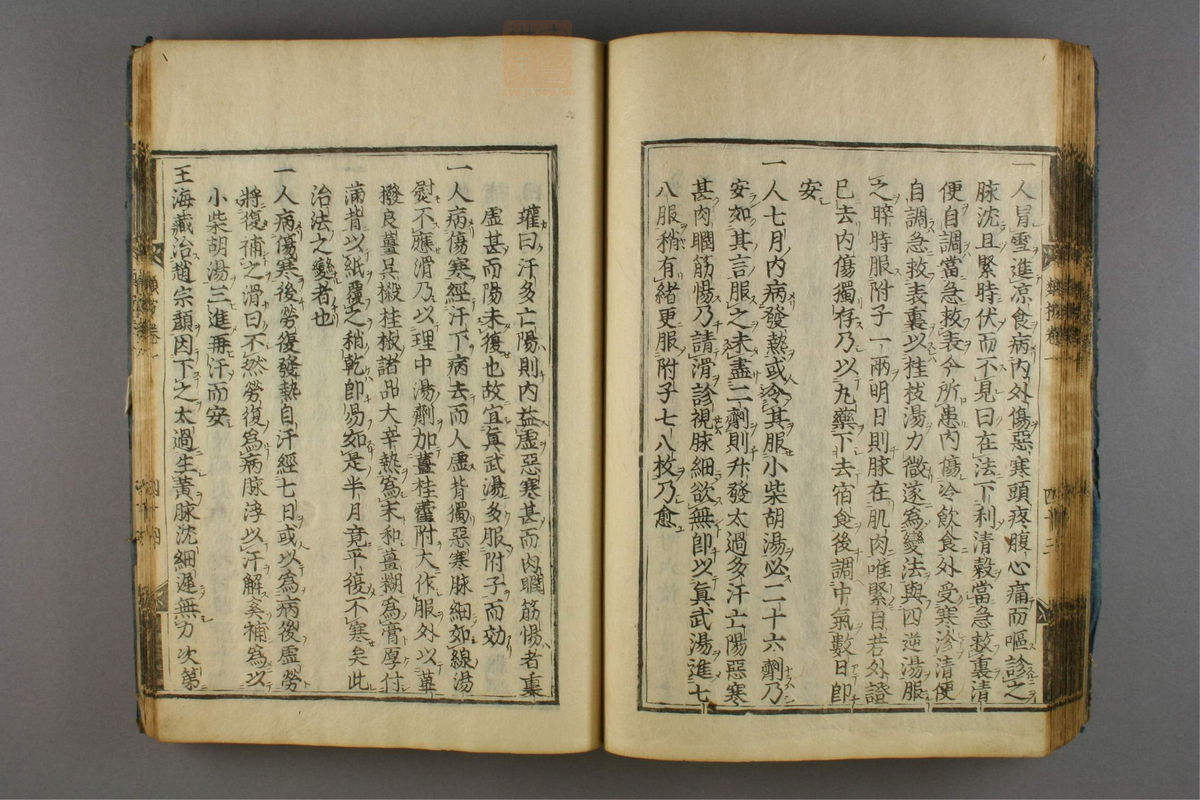 一人冒雪進凉食病内外傷惡寒頭疼腹心痛而嘔診之
脉沈且緊時伏而不見曰在法下利清穀當急救裏清
便自調當急救表今所患内傷冷飲食外受寒沴清便
自調急救表裏以桂枝湯力微遂為變法與四逆湯服
之晬時服附子一兩明日則脉在肌肉唯緊自若外證
已去内傷獨存乃以丸藥下去宿食後調中氣數日即
安
一人七月内病發熱或令其服小柴胡湯必二十六劑乃
安如其言服之未盡二劑則升發太過多汗亡陽惡寒
甚肉瞤筋惕乃請滑診視脉細欲無即以真武湯進七
八服稍有緒更服附子七八枚乃愈
瓘曰汗多亡陽則内益虛惡寒甚而肉瞤筋惕者裏
虛甚而陽未復也故宜真武湯多服附子而効
一人病傷寒經汗下病去而人虛背獨惡寒脉細如線湯
熨不應滑乃以理中湯劑加薑桂藿附大作服外以蓽
撥良薑吳椒桂椒諸品大辛熱為末和薑糊為膏厚付
滿背以紙覆之稍乾即易如是半月竟平復不寒矣此
治法之變者也
一人病傷寒後勞復發熱自汗經七日或以為病後虛勞
將復補之滑曰不然勞復為病脉浮以汗解奚補為以
小柴胡湯三進再汗而安
王海藏治趙宗顏因下之太過生黄脉沈細遲無力次第